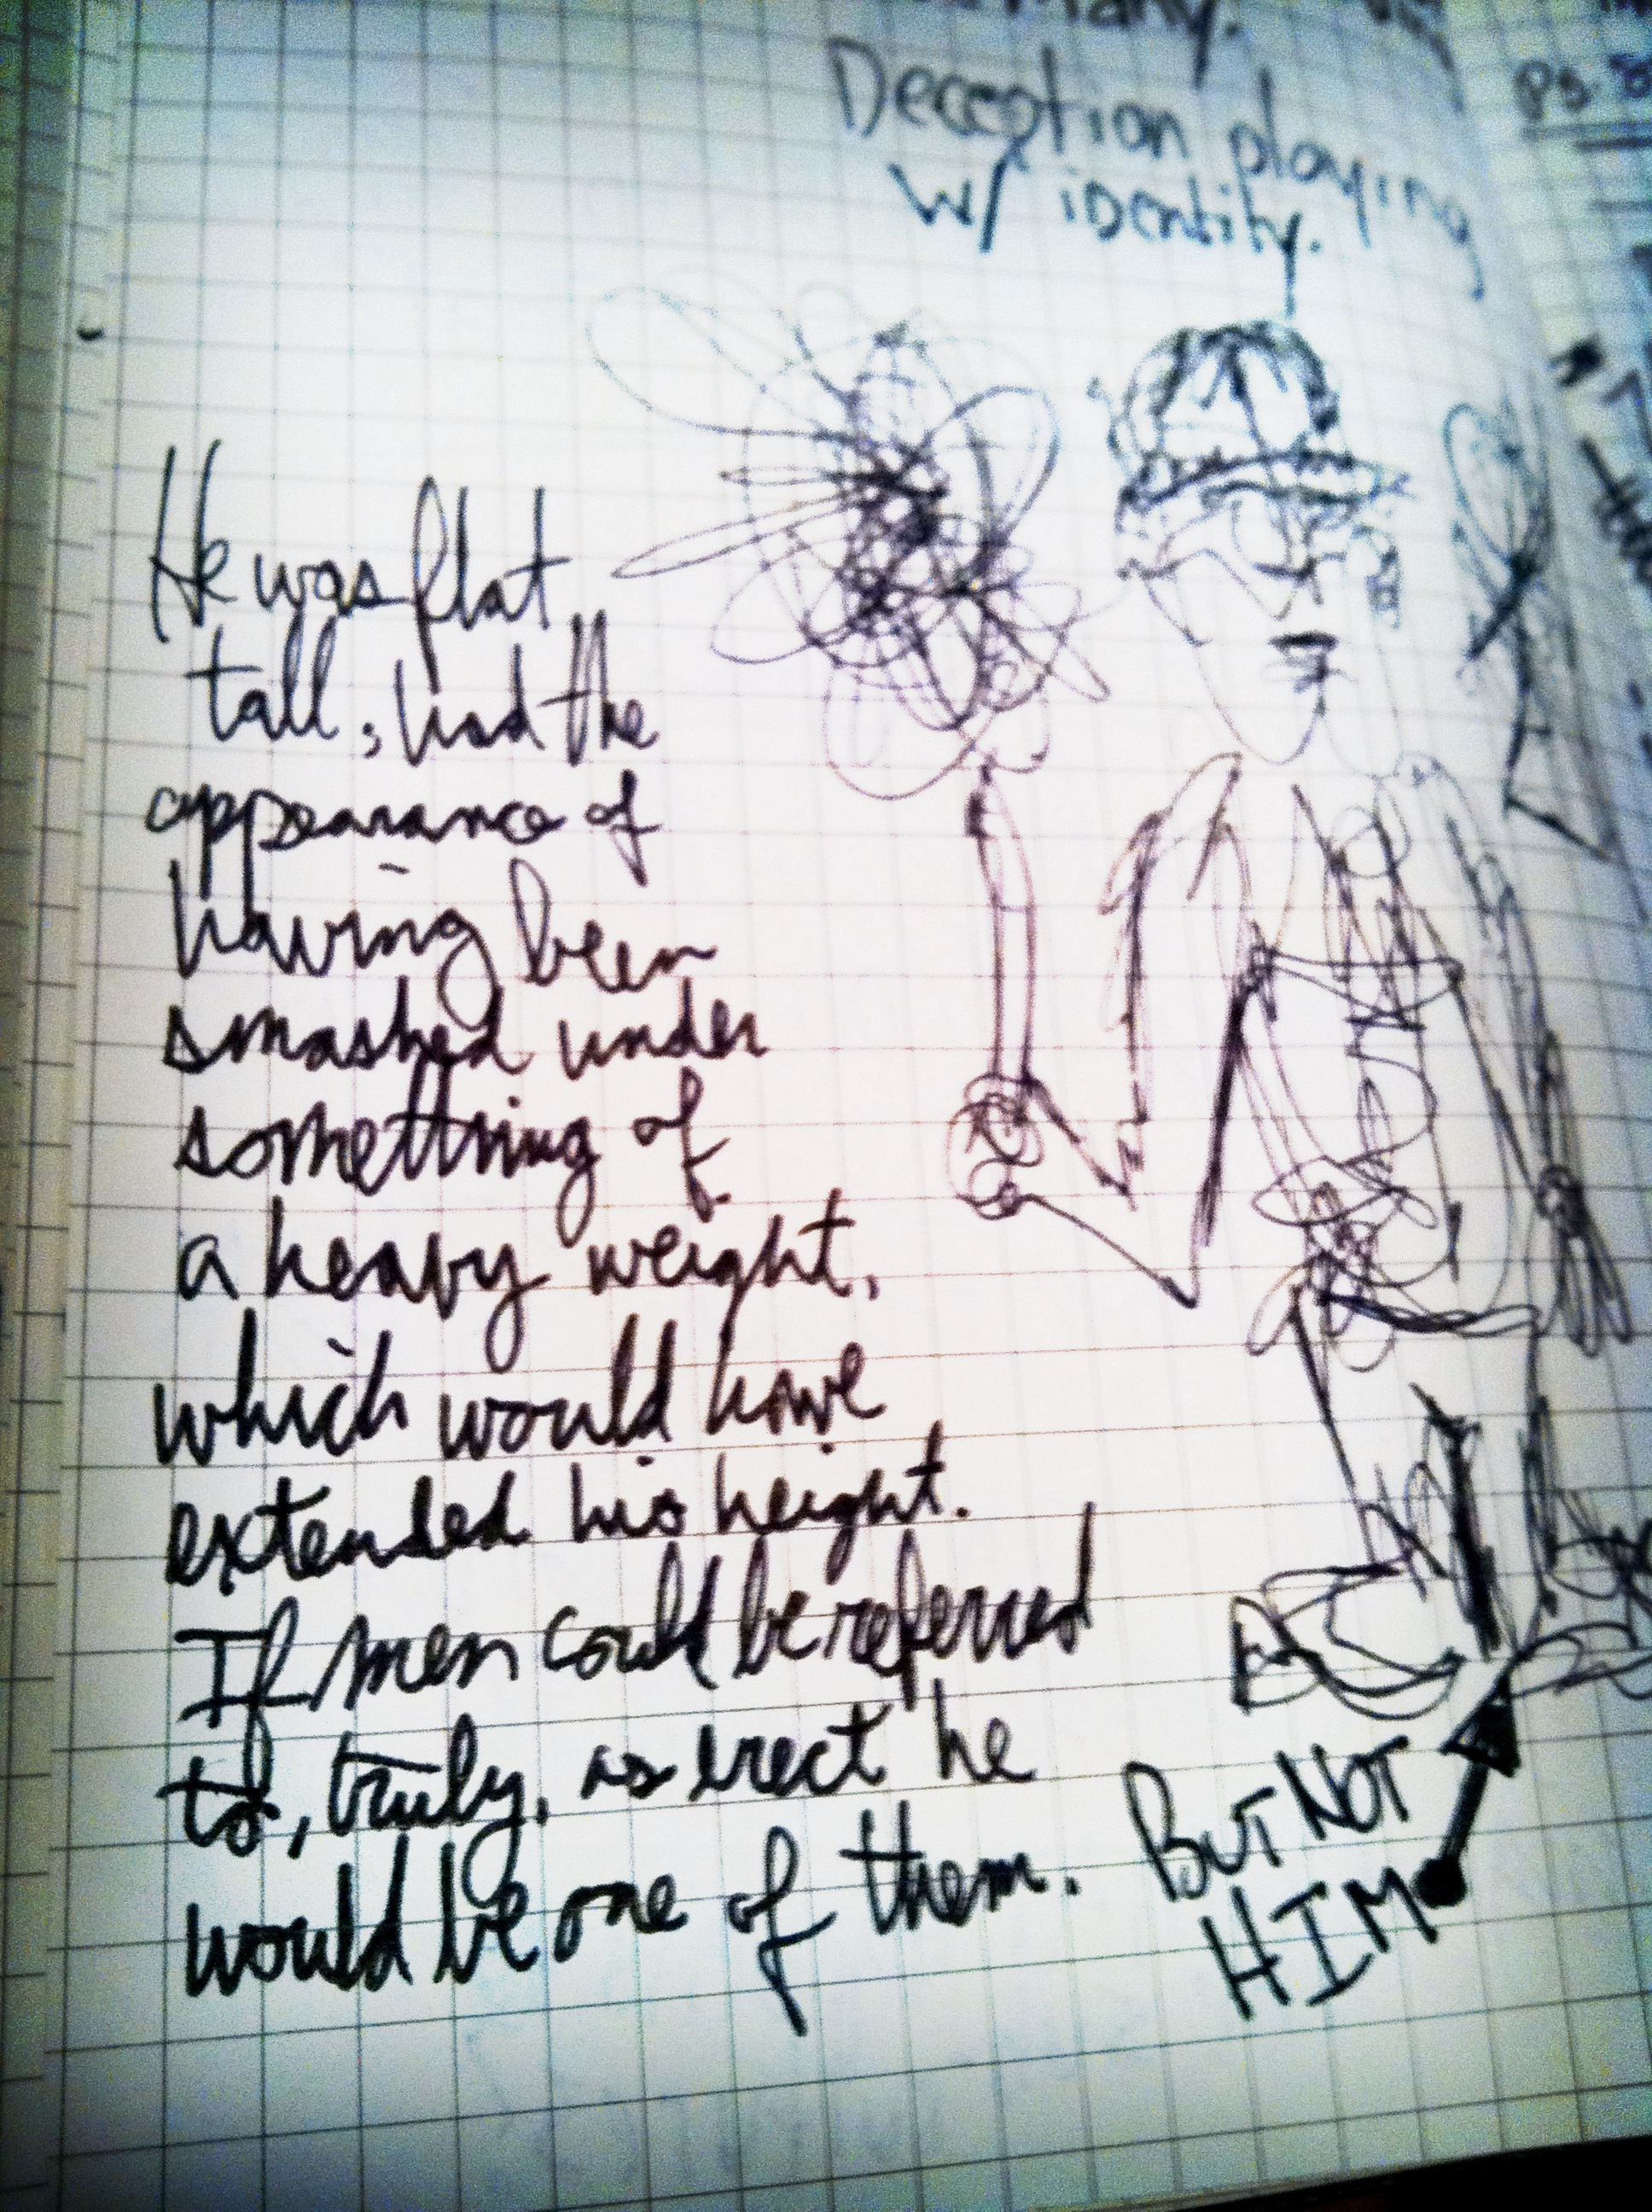 Deception playing
w/ identity.
He was flat
tall; had the
appearance of
having been
smashed under
something of
a heavy weight,
which would have
extended his height.
If men could be referred
to, truly, as erect he
would be one of them.
BUT NOT
HIM